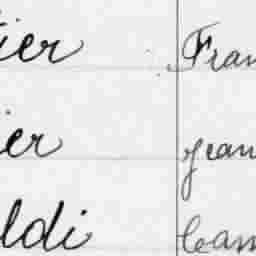 ier Fran
er jean
ldi Cam